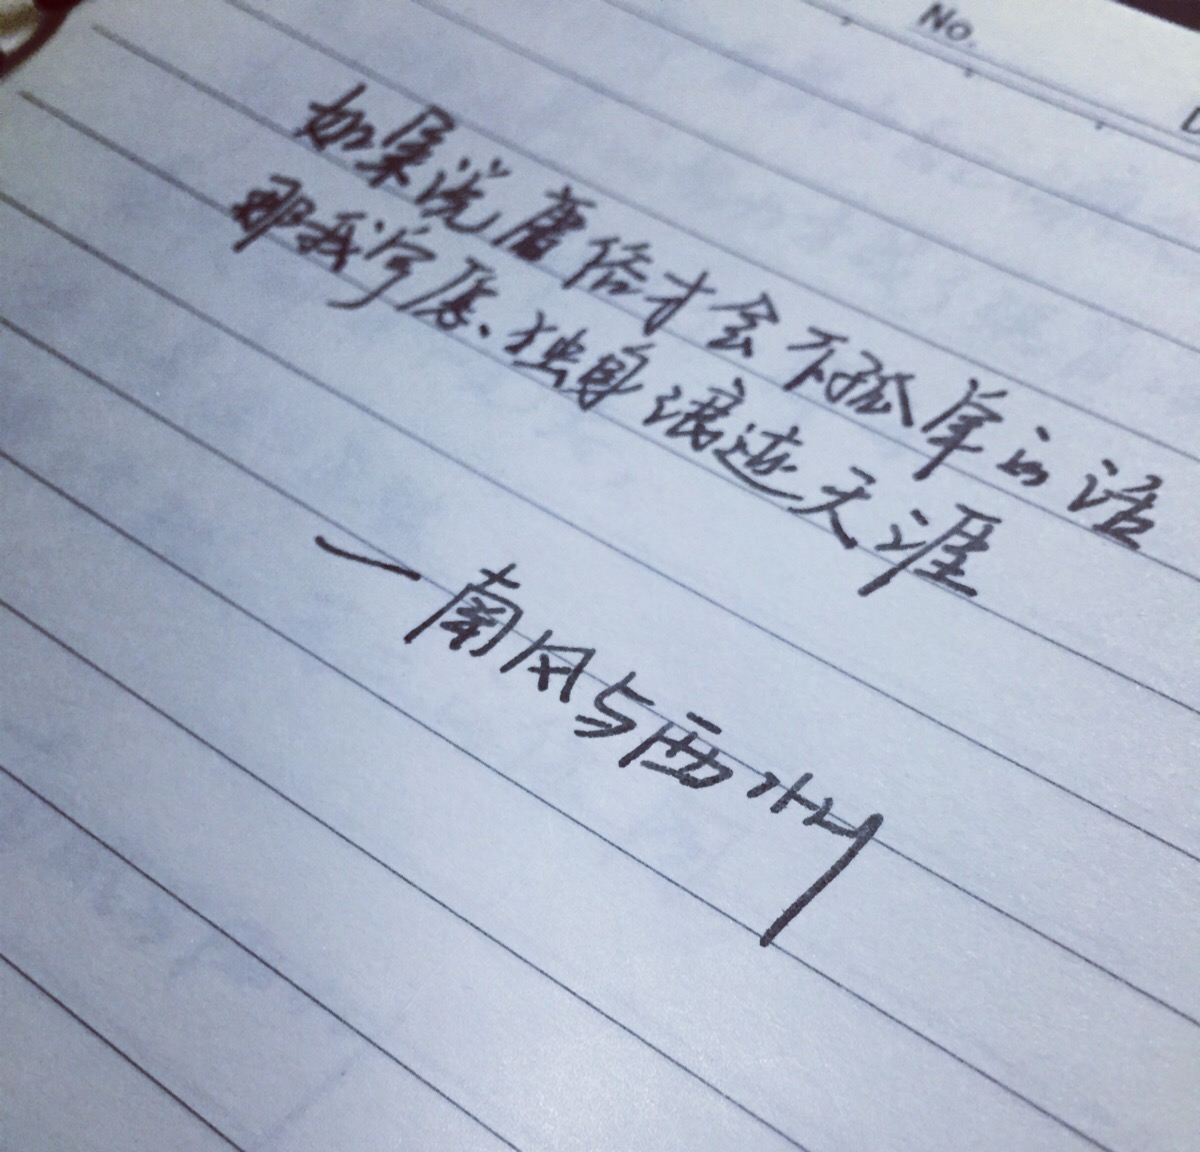 No.
如果说庸俗才会不孤单的话
那我宁愿、独身浪迹天涯
—南风与西洲